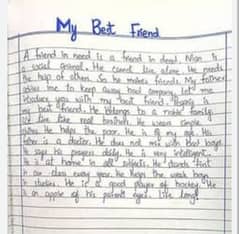 My Best Friend
A friend in need is a friend in deed. Man is
a social animal. He cannot live alone. He needs
the help of others. So he makes friends. My father
asks me to keep away bad company. Let me
introduce you with my best friend. is
my best friend. He belongs to a noble family.
We live like real brothers. He wears simple
He helps the poor. He is of my age. His
father is a doctor. He does not mix with bad boys.
He says his prayers daily. He is very intelligent.
He is at home in all subjects. He stands first
in our class every year. He helps the weak boys
in studies. He is a good player of hockey. He
is an apple of his parents eyes. Live long!